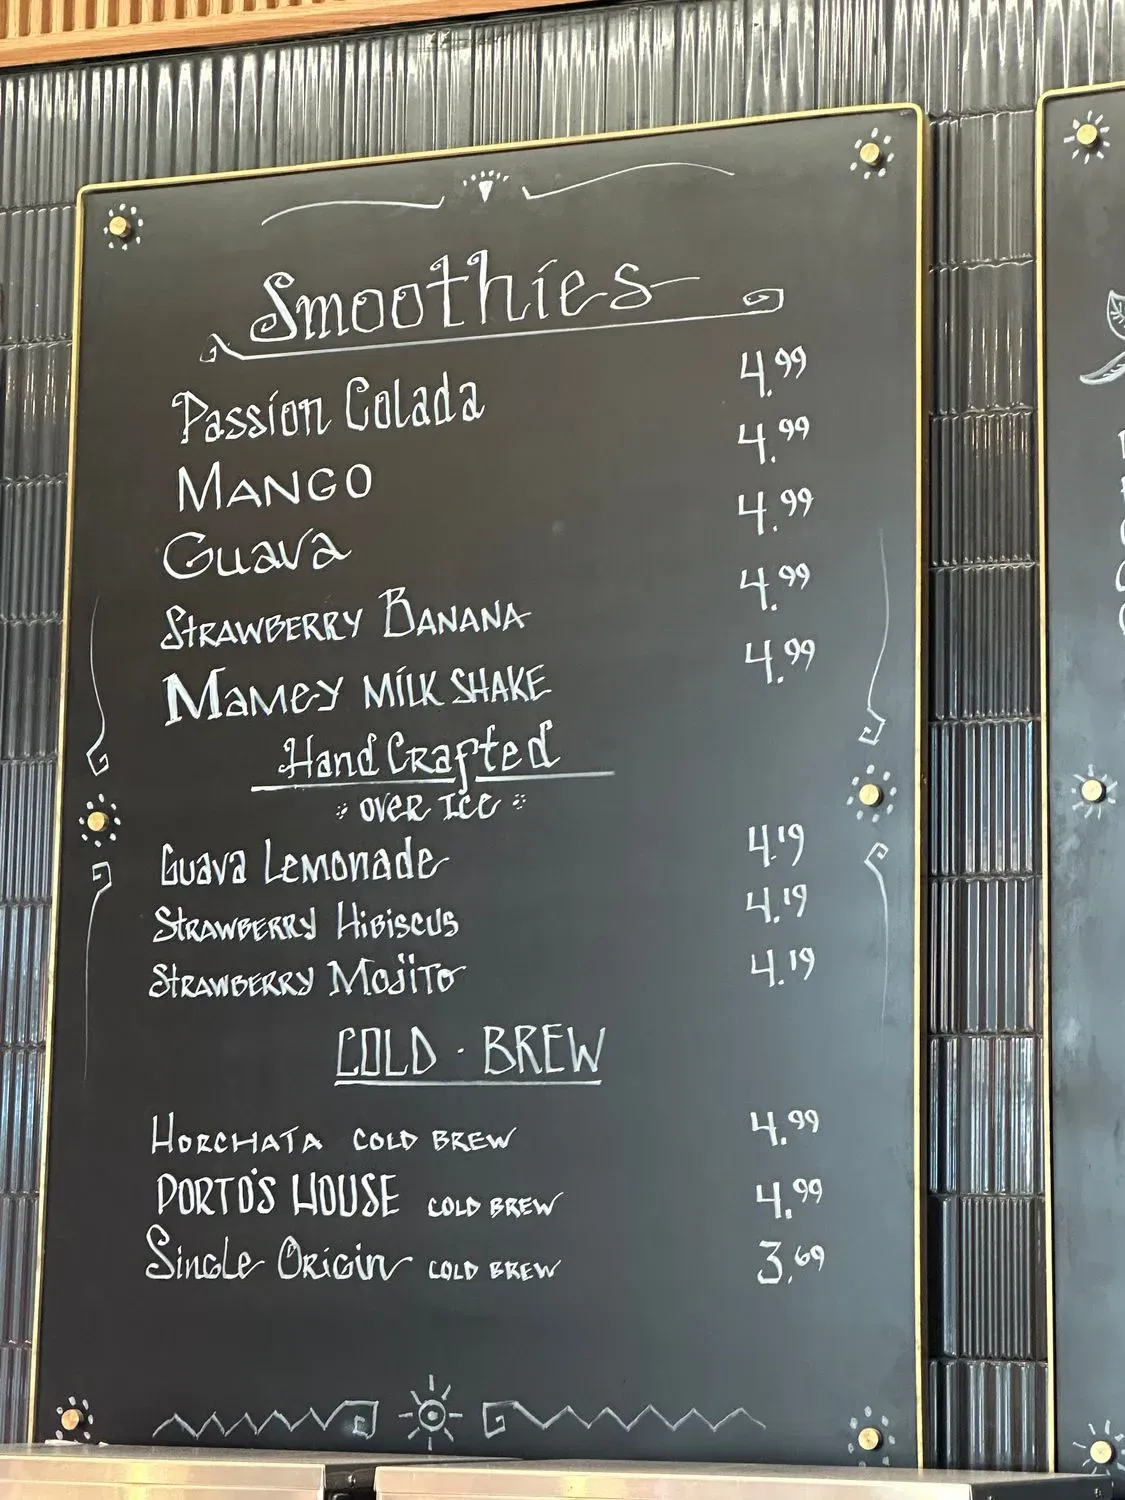 Smoothies
Passion Colada 4.99
MANGO 4.99
Guava 4.99
STRAWBERRY BANANA 4.99
Mamey MILK SHAKE 4.99
Hand Crafted
over ICE
Guava Lemonade 4.19
STRAWBERRY HIBISCUS 4.19
STRAWBERRY MOJITO 4.19
COLD · BREW
HORCHATA COLD BREW 4.99
PORTO'S HOUSE COLD BREW 4.99
Single Origin COLD BREW 3.69